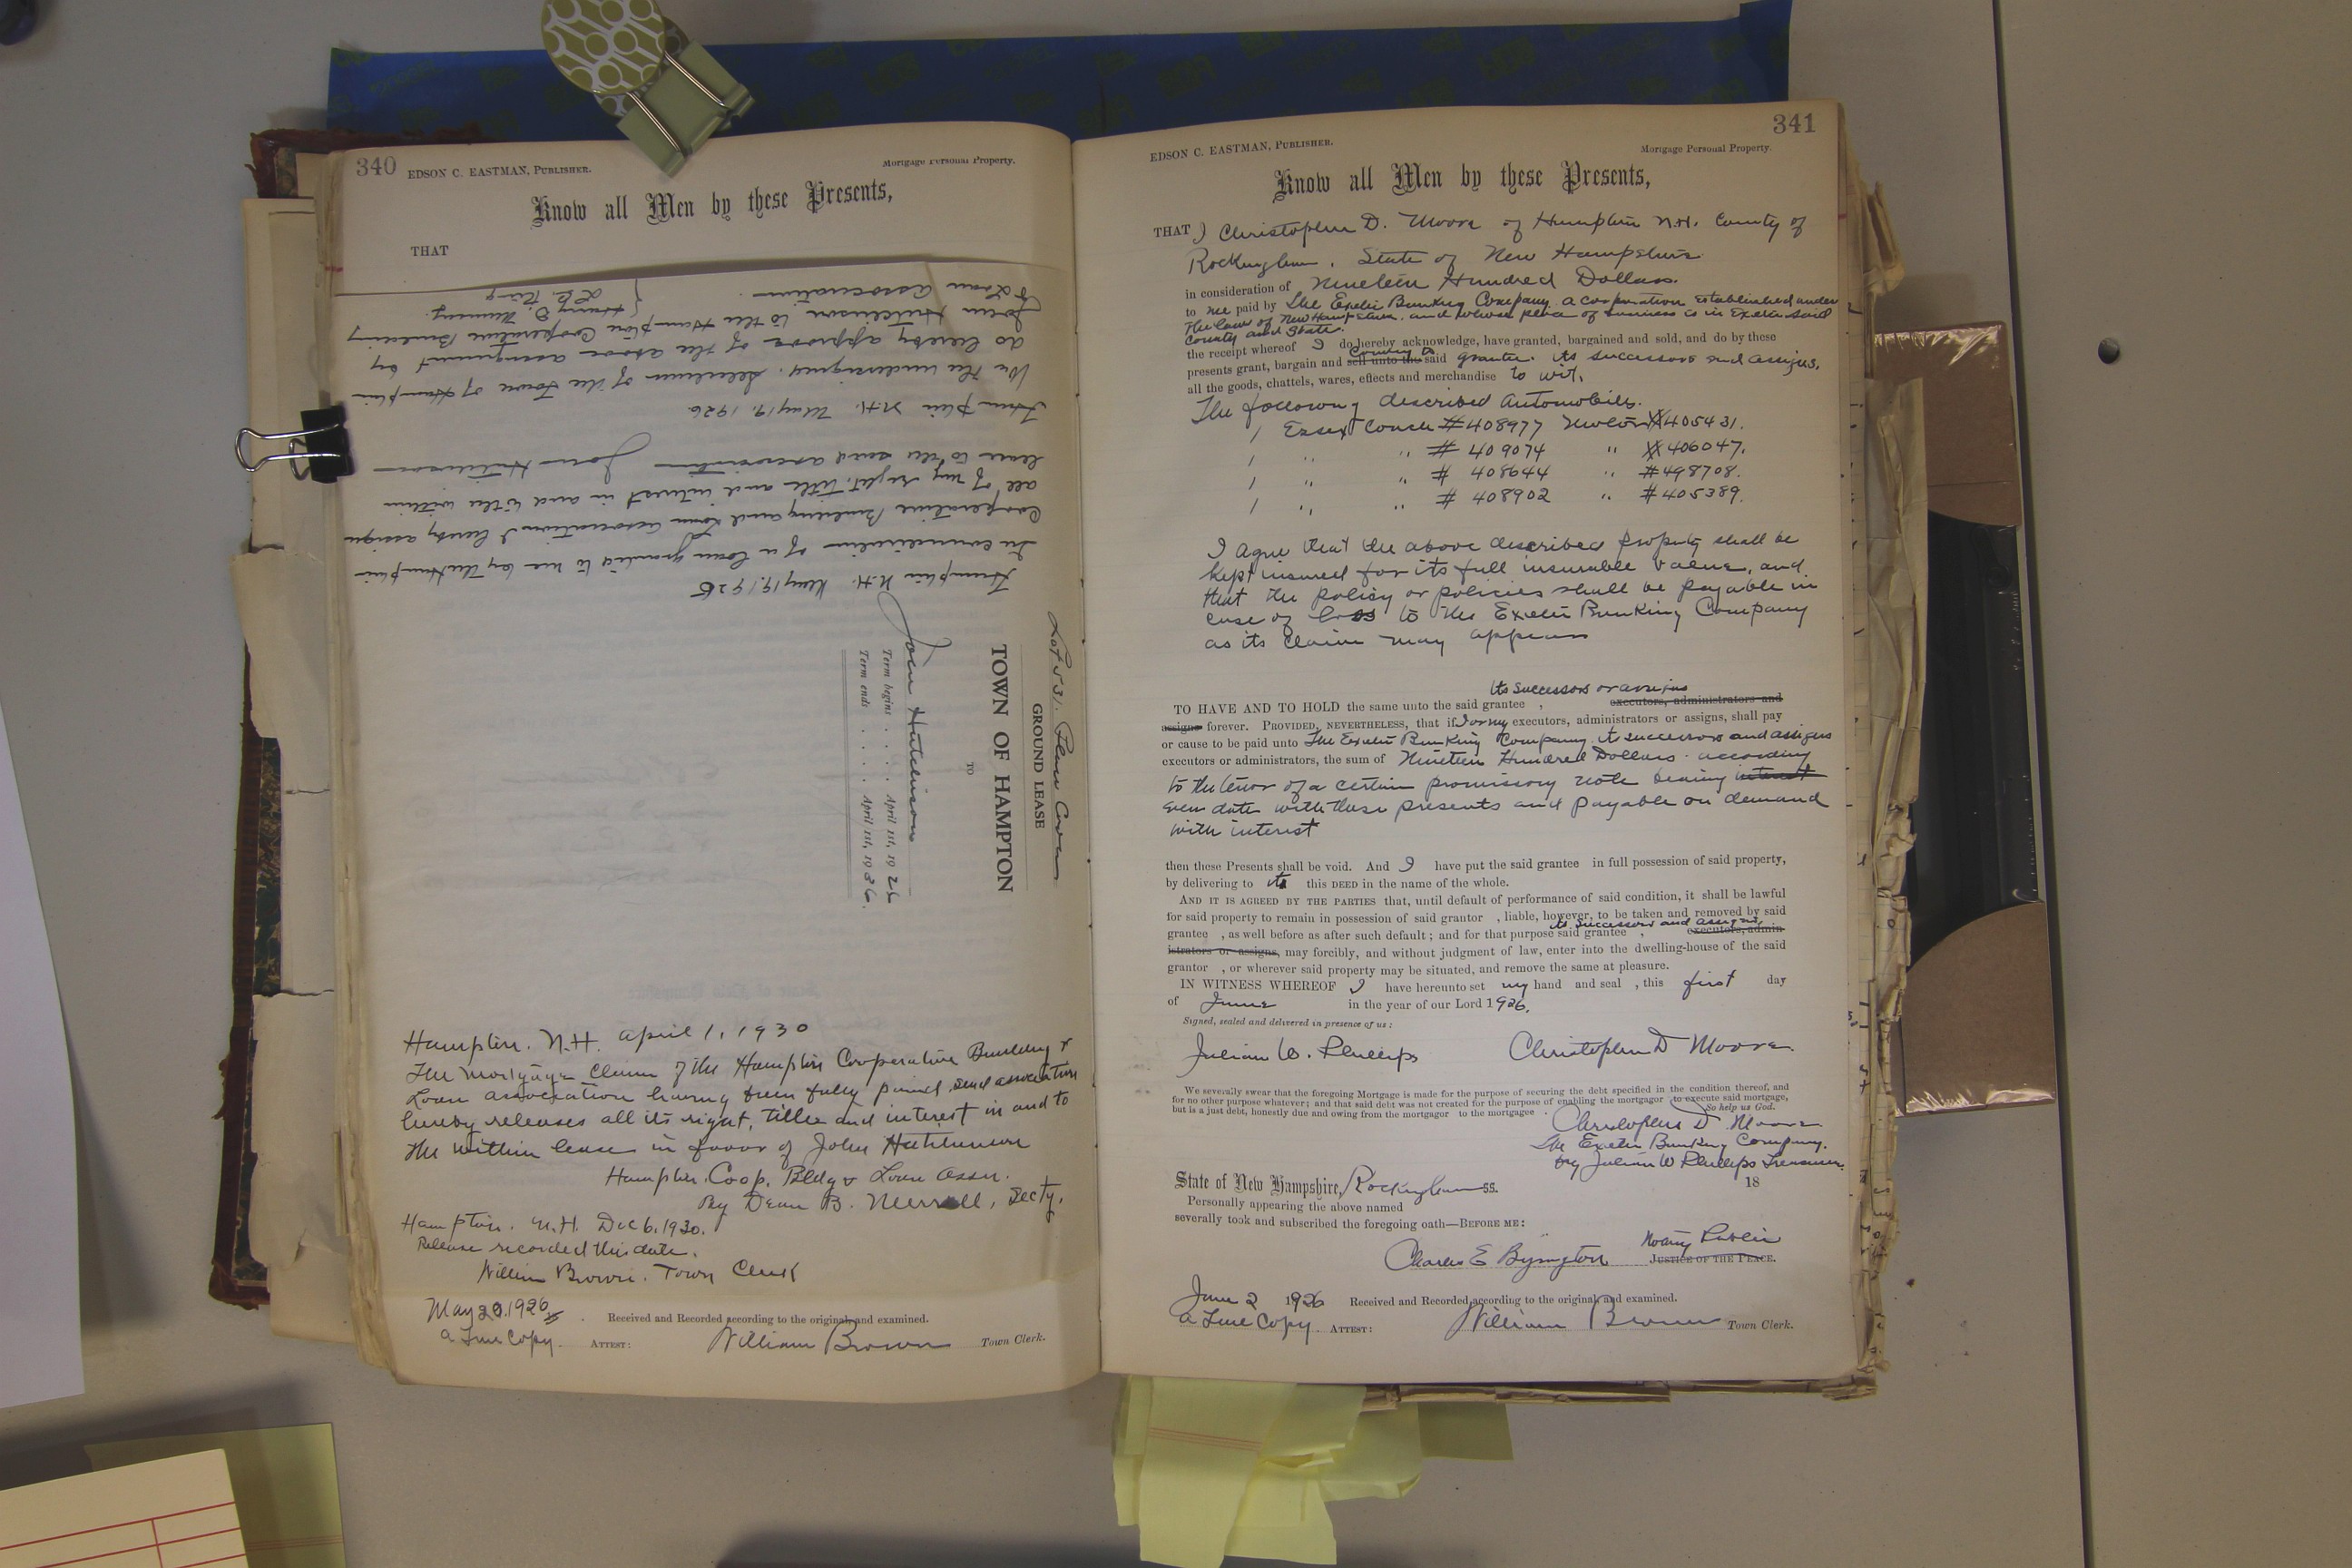 340
EDSON C. EASTMAN, PUBLISHER.
Mortgage Personal Property.
Know all Men by these Presents,
THAT
Hampton N.H. May 19, 1926
In consideration of a loan granted to me by the Hampton
Cooperative Building and Loan Association I hereby assign
all of my right, title and interest in and to the within
lease to the said association John Hutchinson
Hampton N.H. May 19, 1926
We the undersigned, Selectmen of the Town of Hampton
do hereby approve of the above assignment by
John Hutchinson to the Hampton Cooperative Building
& Loan Association.
Harry D. Munsey.
Lot 531. Plane Cove
GROUND LEASE
TOWN OF HAMPTON
TO
John Hutchinson
Term begins . . . . April 1st, 1926
Term ends . . . . April 1st, 1936.
Hampton. N.H. April 1, 1930
The mortgage claim of the Hampton Cooperative Building &
Loan association having been fully paid, said association
hereby releases all its right, title and interest in and to
the within lease in favor of John Hutchinson
Hampton Coop. Bldg & Loan Assn.
By Dean B. Merrill, Secty.
Hampton. N.H. Dec 6. 1930.
Release recorded this date.
William Brown. Town Clerk
May 20. 1926 . Received and Recorded according to the original, and examined.
a True Copy. ATTEST: William Brown Town Clerk.
341
EDSON C. EASTMAN, PUBLISHER.
Mortgage Personal Property.
Know all Men by these Presents,
THAT I Christopher D. Moore of Hampton N.H. County of
Rockingham, State of New Hampshire
in consideration of Nineteen Hundred Dollars.
to me paid by The Exeter Banking Company. a corporation established under
the laws of New Hampshire. and whose place of business is in Exeter said
County and State.
the receipt whereof I do hereby acknowledge, have granted, bargained and sold, and do by these
presents grant, bargain and sell unto the said grantee. its successors and assigns,
all the goods, chattels, wares, effects and merchandise to wit,
The following described Automobiles.
1 Essex Coach #408977 Motor #405431.
1 " " # 409074 " # 406047.
1 " " # 408644 " #498708.
1 " " # 408902 " #405389.
I agree that the above described property shall be
kept insured for its full insurable value, and
that the policy or policies shall be payable in
case of loss to the Exeter Banking Company
as its claim may appear
its successors or assigns
TO HAVE AND TO HOLD the same unto the said grantee , executors, administrators and
assigns forever. PROVIDED, NEVERTHELESS, that if I or my executors, administrators or assigns, shall pay
or cause to be paid unto The Exeter Banking Company. its successors and assigns
executors or administrators, the sum of Nineteen Hundred Dollars according
to the tenor of a certain promissory note bearing interest
even date with these presents and payable on demand
with interest
then these Presents shall be void. And I have put the said grantee in full possession of said property,
by delivering to its this DEED in the name of the whole.
AND IT IS AGREED BY THE PARTIES that, until default of performance of said condition, it shall be lawful
for said property to remain in possession of said grantor , liable, however, to be taken and removed by said
its successors and assigns,
grantee , as well before as after such default; and for that purpose said grantee , executors, admin-
istrators or assigns, may forcibly, and without judgment of law, enter into the dwelling-house of the said
grantor , or wherever said property may be situated, and remove the same at pleasure.
IN WITNESS WHEREOF I have hereunto set my hand and seal , this first day
of June in the year of our Lord 1926.
Signed, sealed and delivered in presence of us:
Julian W. Phillips Christopher D Moore
We severally swear that the foregoing Mortgage is made for the purpose of securing the debt specified in the condition thereof, and
for no other purpose whatever; and that said debt was not created for the purpose of enabling the mortgagor to execute said mortgage,
but is a just debt, honestly due and owing from the mortgagor to the mortgagee . So help us God.
Christopher D. Moore
The Exeter Banking Company.
by Julian W Phillips Treasurer.
State of New Hampshire, Rockingham SS. 18
Personally appearing the above named
severally took and subscribed the foregoing oath—BEFORE ME:
Charles E Byington Notary Public
JUSTICE OF THE PEACE.
June 2 1926 Received and Recorded according to the original, and examined.
a True Copy. ATTEST: William Brown Town Clerk.